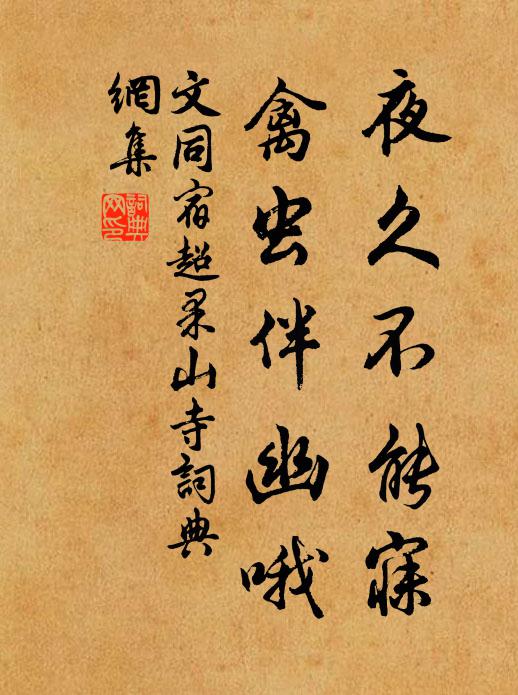 夜久不能寐
禽虫伴幽哦
文同宿超果山寺詞典
網集
詞典網印